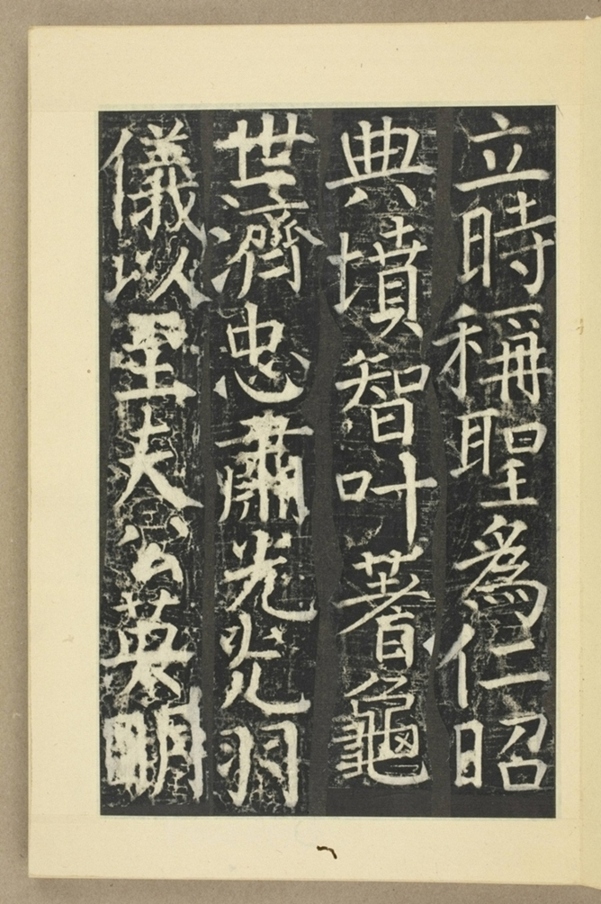 立時稱聖爲仁昭
典墳智叶蓍龜
世濟忠肅光炎羽
儀以至夫公英明